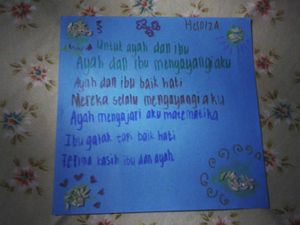 HerniZA
Untuk ayah dan ibu
Ayah dan ibu menyayangi aku
Ayah dan ibu baik hati
Mereka selalu mengayangi aku
Ayah mengajari aku matematika
Ibu galak tapi baik hati
Terima kasih ibu dan ayah